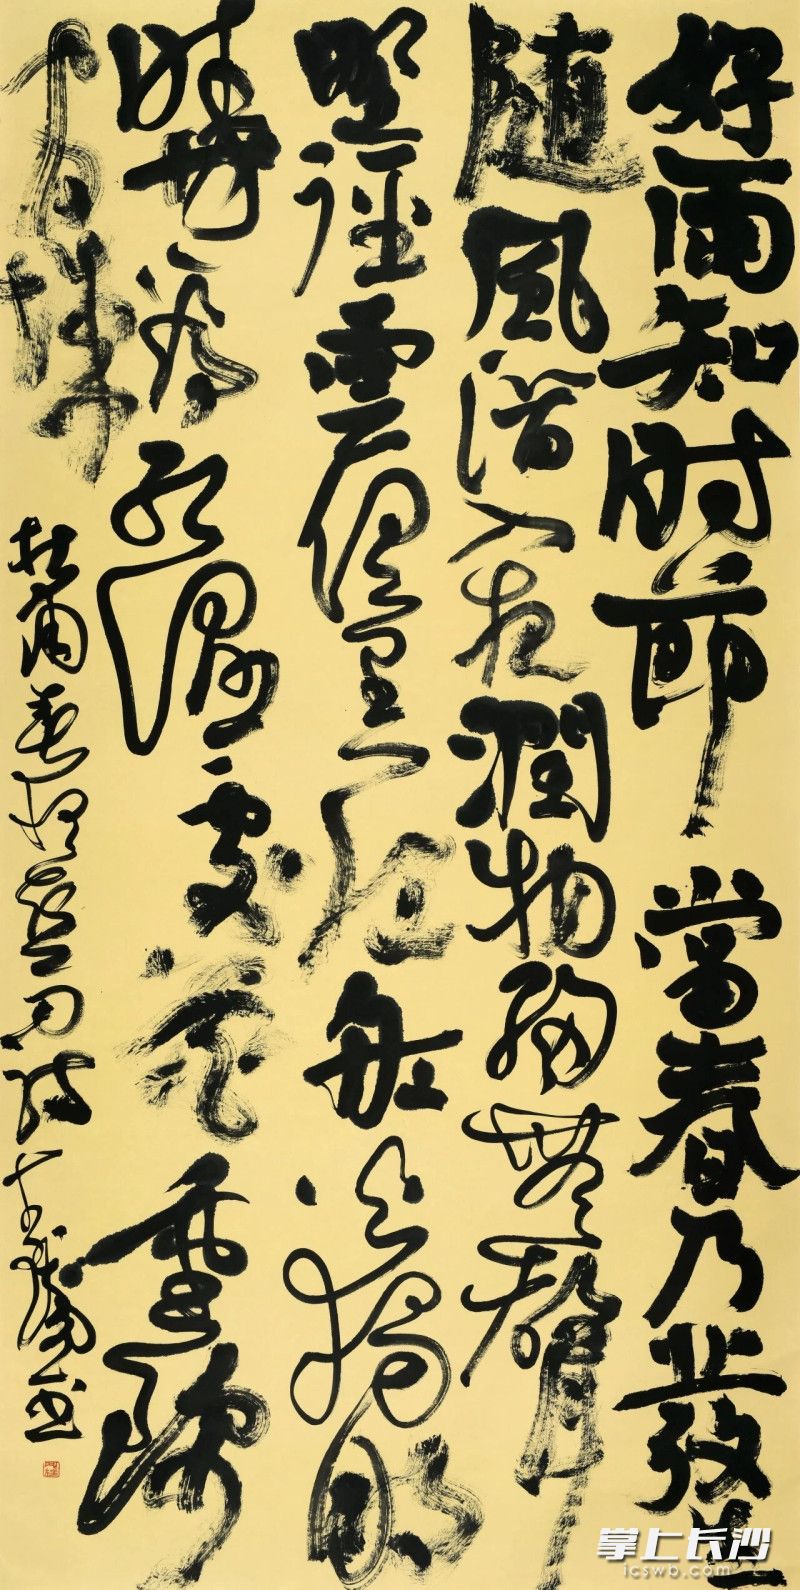 好雨知时節當春乃發生
随風潜入夜潤物細無聲
野徑雲俱黑江船火獨明
曉看紅濕處花重錦
官城
杜甫春夜喜雨诗
掌上长沙
icswb.com